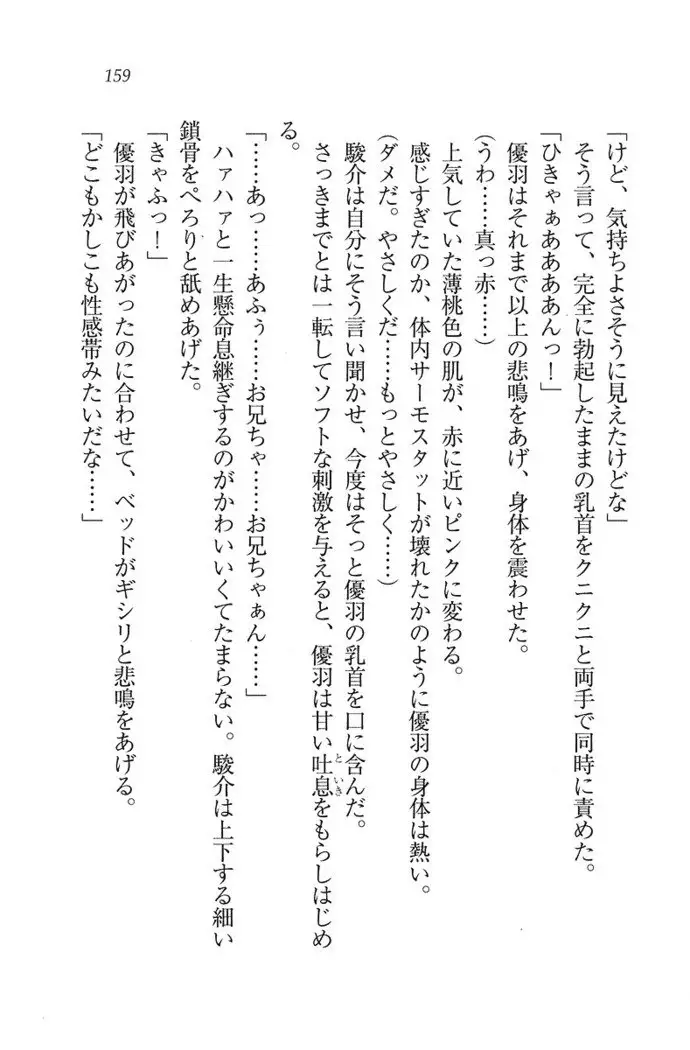 159
「けど、気持ちよさそうに見えたけどな」
そう言って、完全に勃起したままの乳首をクニクニと両手で同時に責めた。
「ひきゃぁああああんっ！」
優羽はそれまで以上の悲鳴をあげ、身体を震わせた。
(うわ……真っ赤……)
上気していた薄桃色の肌が、赤に近いピンクに変わる。
感じすぎたのか、体内サーモスタットが壊れたかのように優羽の身体は熱い。
(ダメだ。やさしくだ……もっとやさしく……)
駿介は自分にそう言い聞かせ、今度はそっと優羽の乳首を口に含んだ。
さっきまでとは一転してソフトな刺激を与えると、優羽は甘い吐息をもらしはじめ
る。
「……あっ……あふぅ……お兄ちゃ……お兄ちゃぁん……」
ハァハァと一生懸命息継ぎするのがかわいいくてたまらない。駿介は上下する細い
鎖骨をぺろりと舐めあげた。
「きゃふっ！」
優羽が飛びあがったのに合わせて、ベッドがギシリと悲鳴をあげる。
「どこもかしこも性感帯みたいだな……」